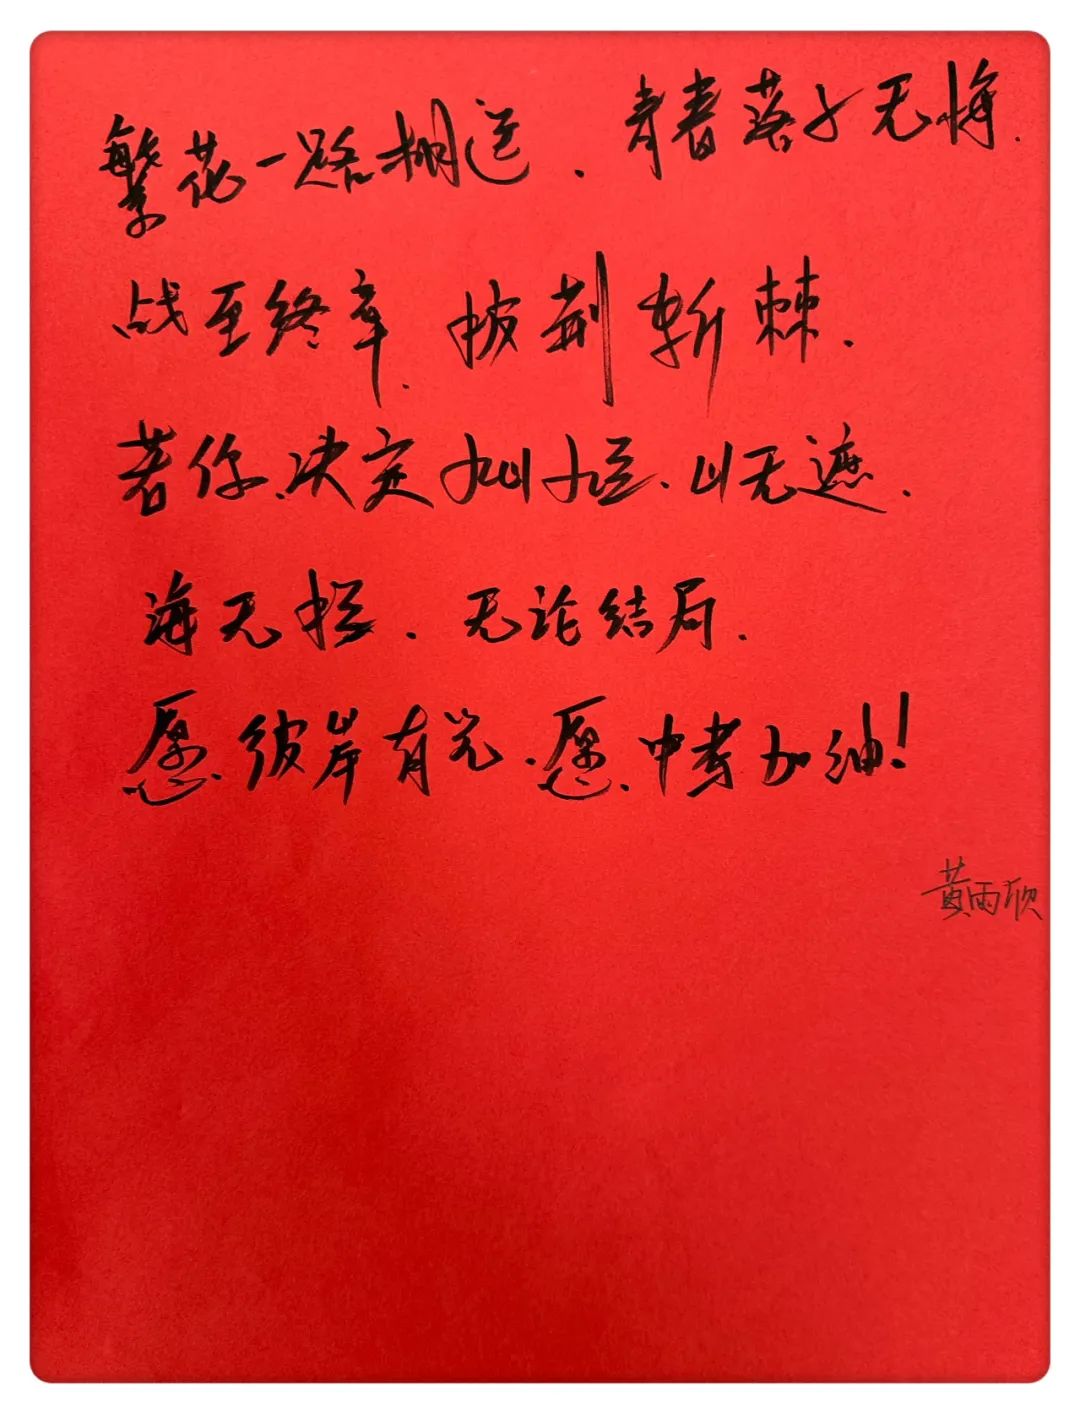 繁花一路相送．青春落子无悔．
战至终章．披荆斩棘．
若你决定灿烂．山无遮．
海无拦．无论结局．
愿彼岸有光．愿中考加油！
黄雨欣